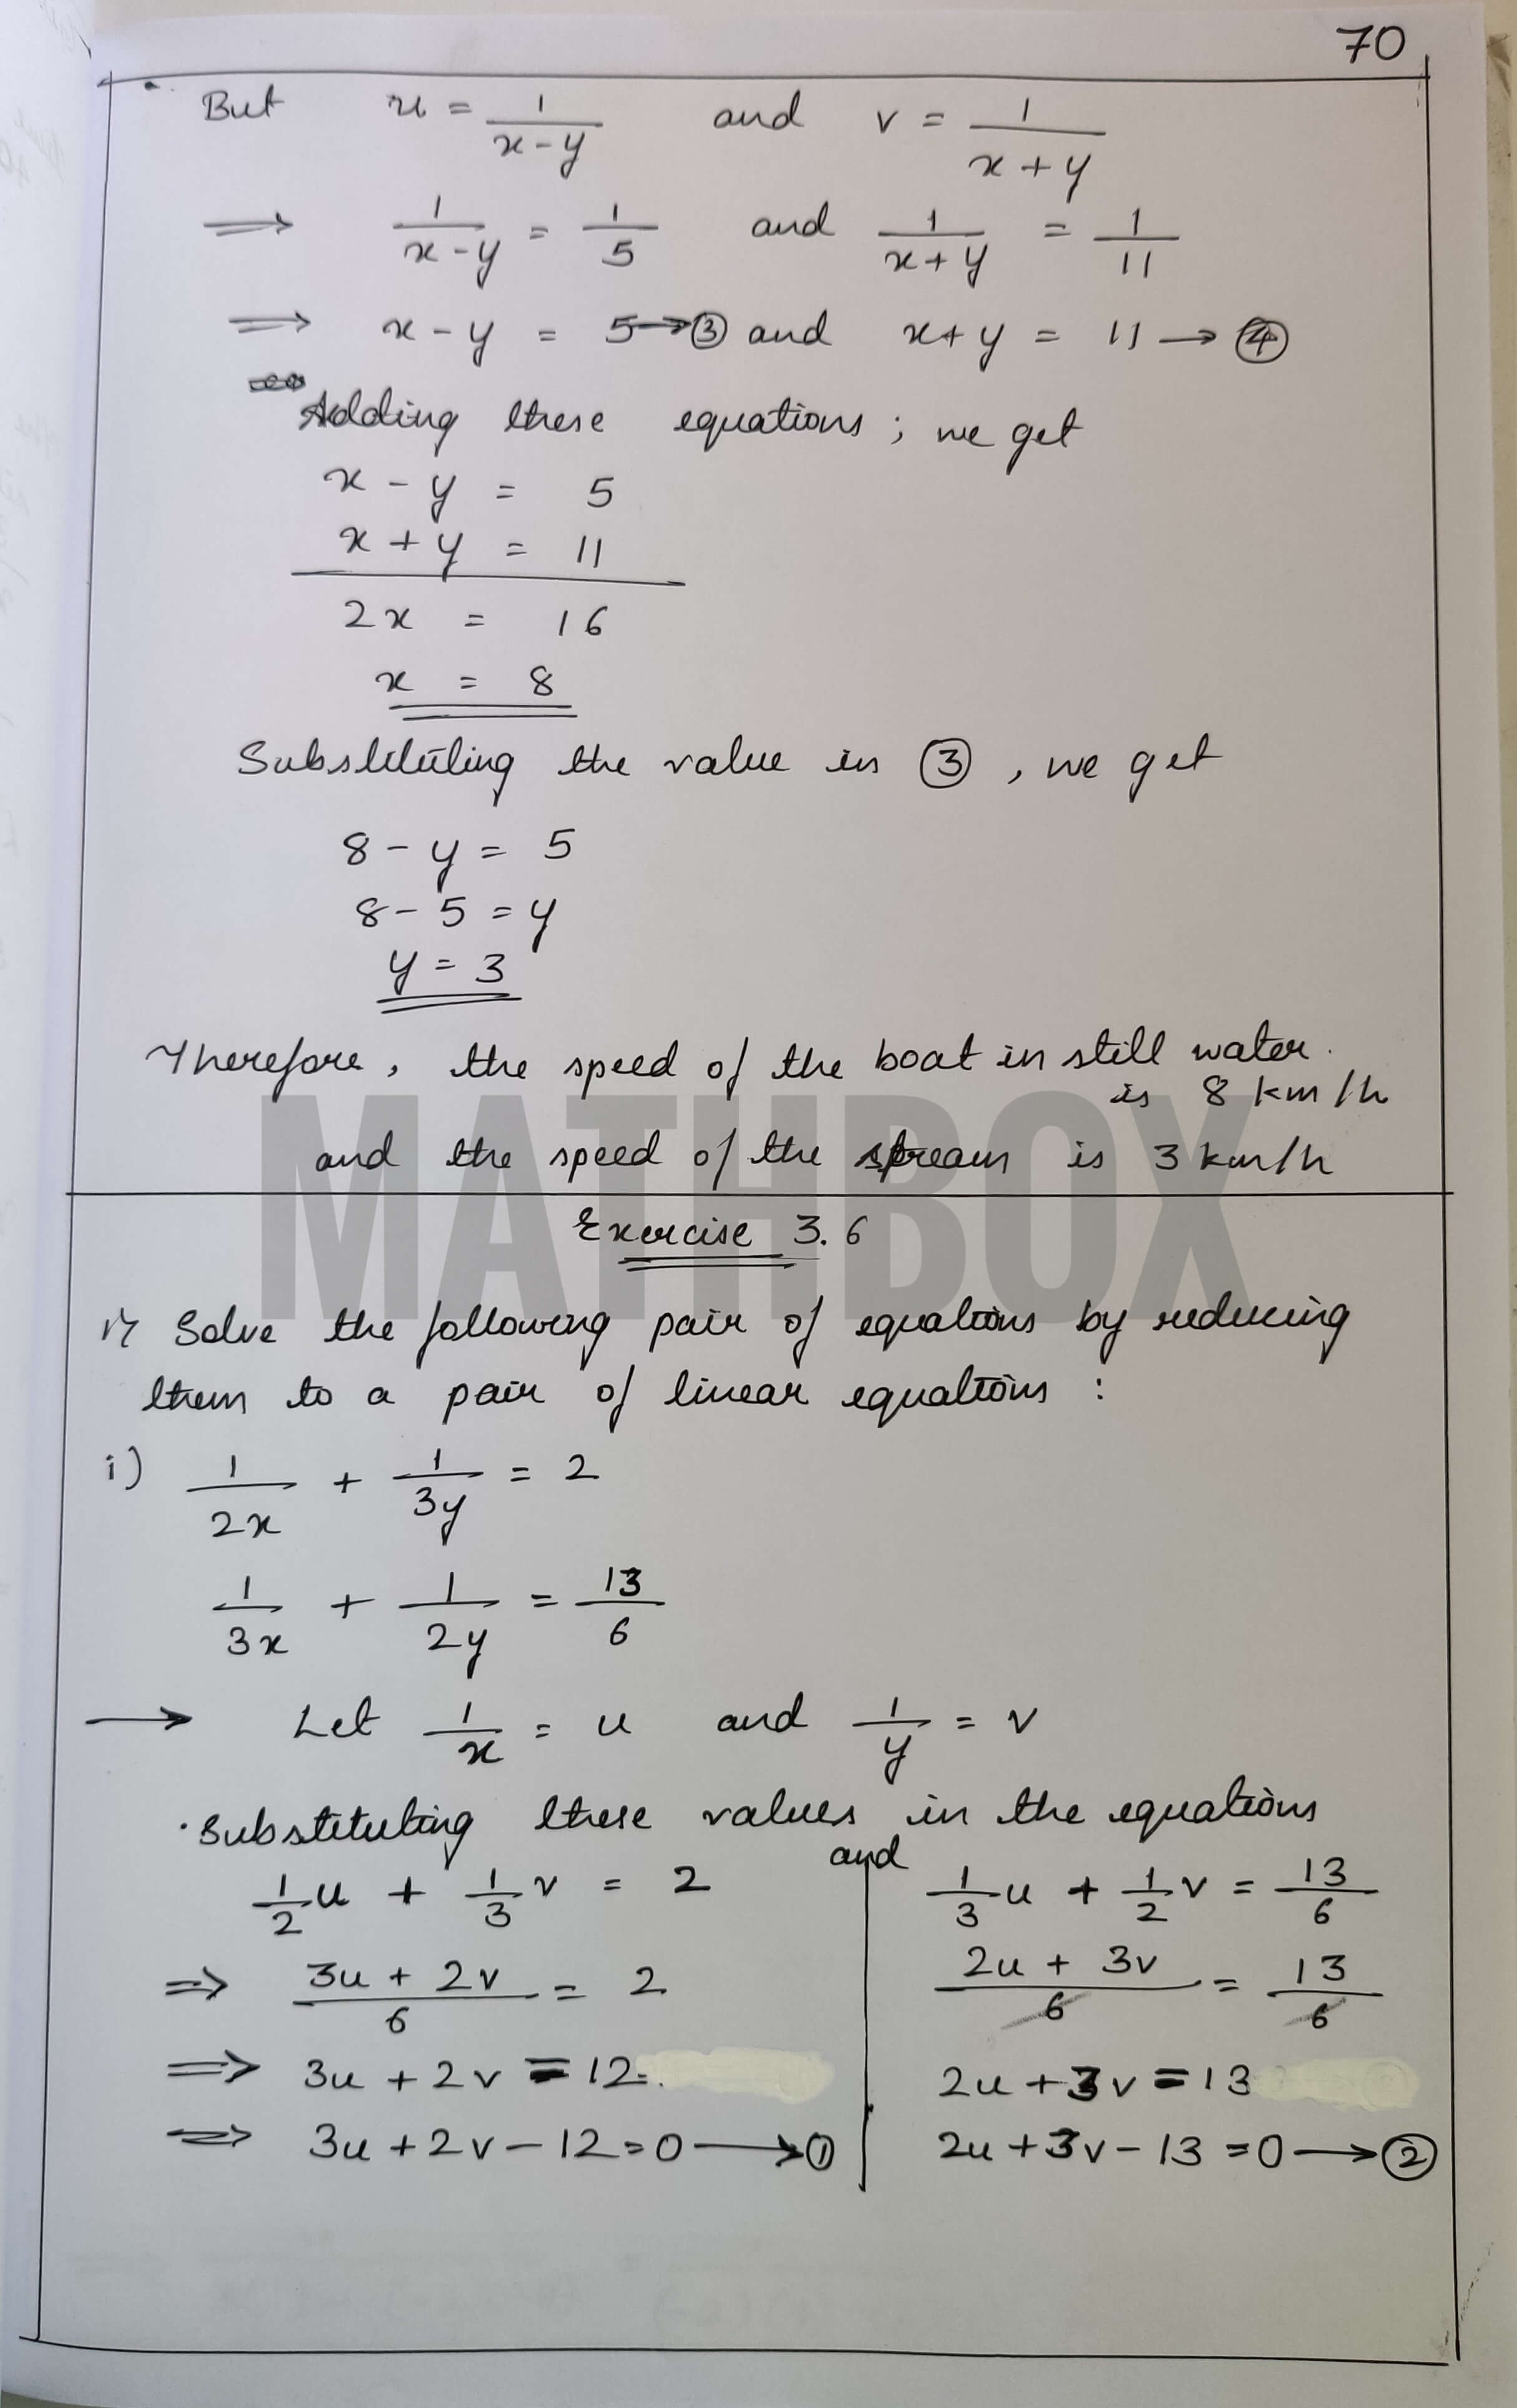 70
But u = 1/(x-y) and v = 1/(x+y)
⟹ 1/(x-y) = 1/5 and 1/(x+y) = 1/11
⟹ x-y = 5 → ③ and x+y = 11 → ④
Adding these equations; we get
x - y = 5
x + y = 11
2x = 16
x = 8
Substituting the value in ③, we get
8 - y = 5
8 - 5 = y
y = 3
Therefore, the speed of the boat in still water
is 8 km/h
and the speed of the stream is 3 km/h
MATHBOX
Exercise 3.6
1) Solve the following pair of equations by reducing
them to a pair of linear equations :
i) 1/2x + 1/3y = 2
1/3x + 1/2y = 13/6
→ Let 1/x = u and 1/y = v
Substituting these values in the equations
and
1/2 u + 1/3 v = 2
⇒ (3u + 2v)/6 = 2
⇒ 3u + 2v = 12
⇒ 3u + 2v - 12 = 0 → ①
1/3 u + 1/2 v = 13/6
(2u + 3v)/6 = 13/6
2u + 3v = 13
2u + 3v - 13 = 0 → ②